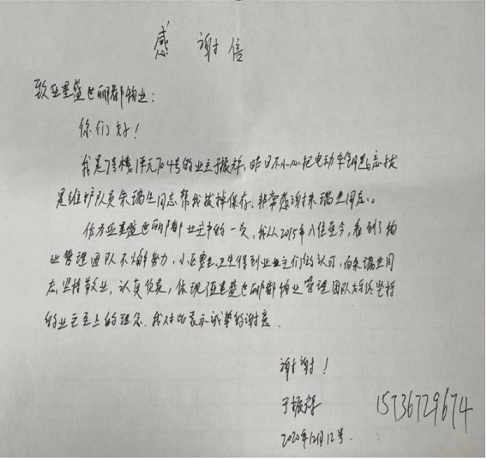 感谢信
致亚星盛世丽都物业：
你们好！
我是7号楼1单元704号的业主于振群，昨日不小心把电动车钥匙忘拔
是维护队员朱瑞生同志帮我拔掉保存，非常感谢朱瑞生同志。
作为亚星盛世丽都业主中的一员，我从2015年入住至今，看到了物
业管理团队不懈努力，小区卫生得到业主们的认可，尚朱瑞生同
志坚持敬业，认真负责，体现了亚星盛世丽都物业管理团队始终坚持
的业主至上的理念。我在此表示诚挚的谢意
谢谢！
于振群
15736729674
2020年12月12号.